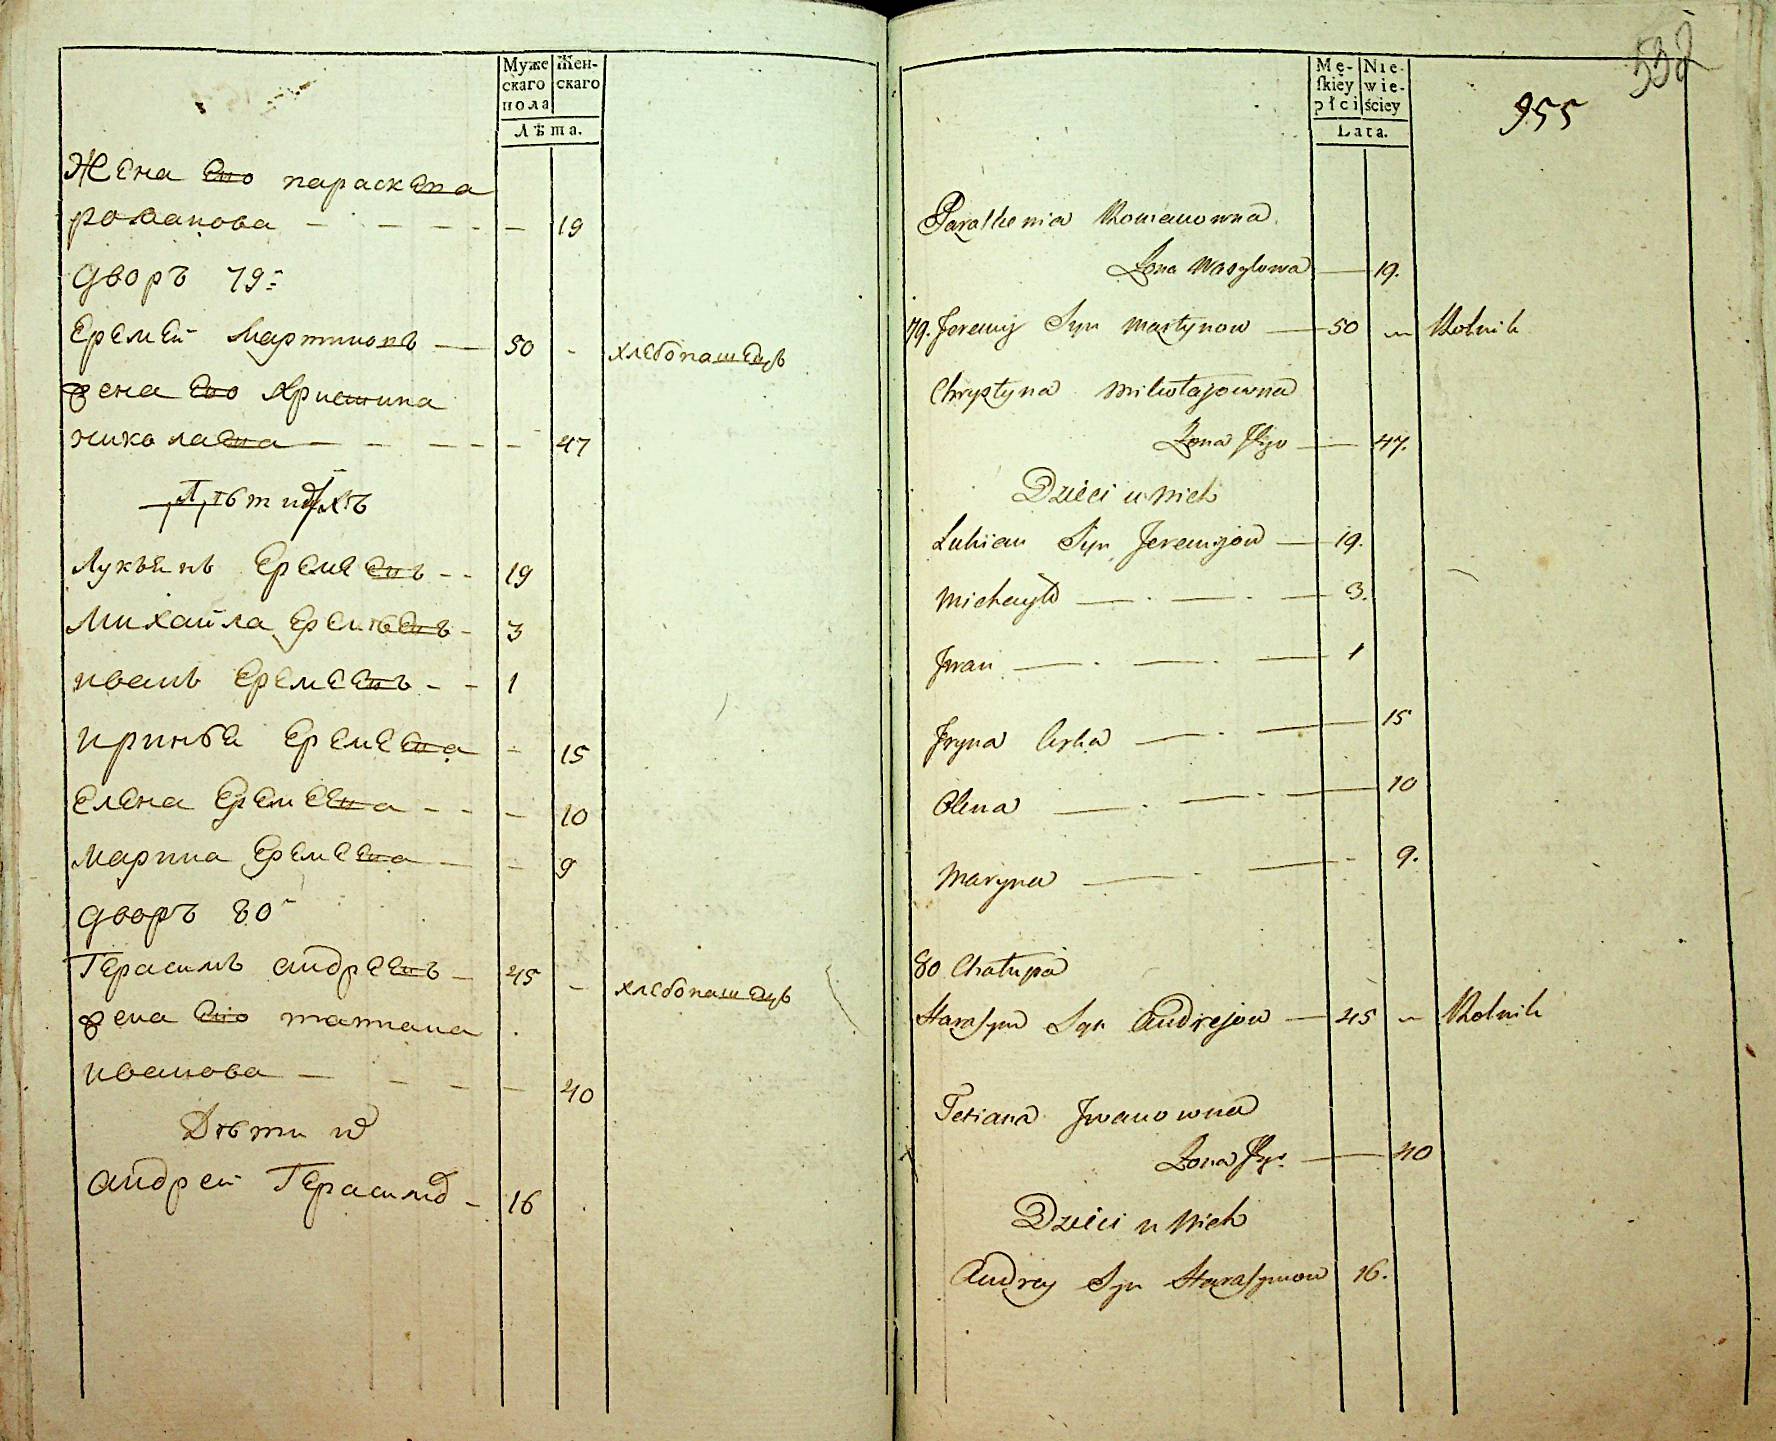 Муже
скаго
пола
Жен-
скаго
Лѣта.
Жена Его параскева
романова — — — — — 19
дворъ 79:
Еремей Мартиновъ — 50 - хлебопашецъ
жена Его Христина
николаева — — — — — 47
Дѣти ихъ
Лукъянъ Еремеевъ - - 19
Михайла Еремѣевъ - 3
иванъ Еремеевъ - - 1
иринѣя Еремеева - 15
Елена Еремеева - - - 10
марина Еремеева - - 9
дворъ 80
Герасимъ андреевъ - 45 - хлебопашецъ
жена Его татиана
иванова — — — — — 40
Дѣти их
андреи Герасимов - 16
538
955
Mę-
skiey
płci
Nie-
wie-
ściey
Lata.
Paraskewia Romanowna
Żona Wasylowa — 19.
79. Jeremij Syn Martynow — 50 — Rolnik
Chrystyna Mikołajowna
Żona Jego — 47.
Dzieci u Nich
Lukian Syn Jeremijow — 19.
Michayło — . — . — 3.
Jwan — . — . — 1
Jryna Corka — . — . — 15
Olena — . — . — 10
Maryna — . — - 9.
80 Chałupa
Harasym Syn Andrejow — 45 — Rolnik
Tetiana Jwanowna
Żona Jego — 40
Dzieci u Nich
Andrey Syn Harasymow 16.